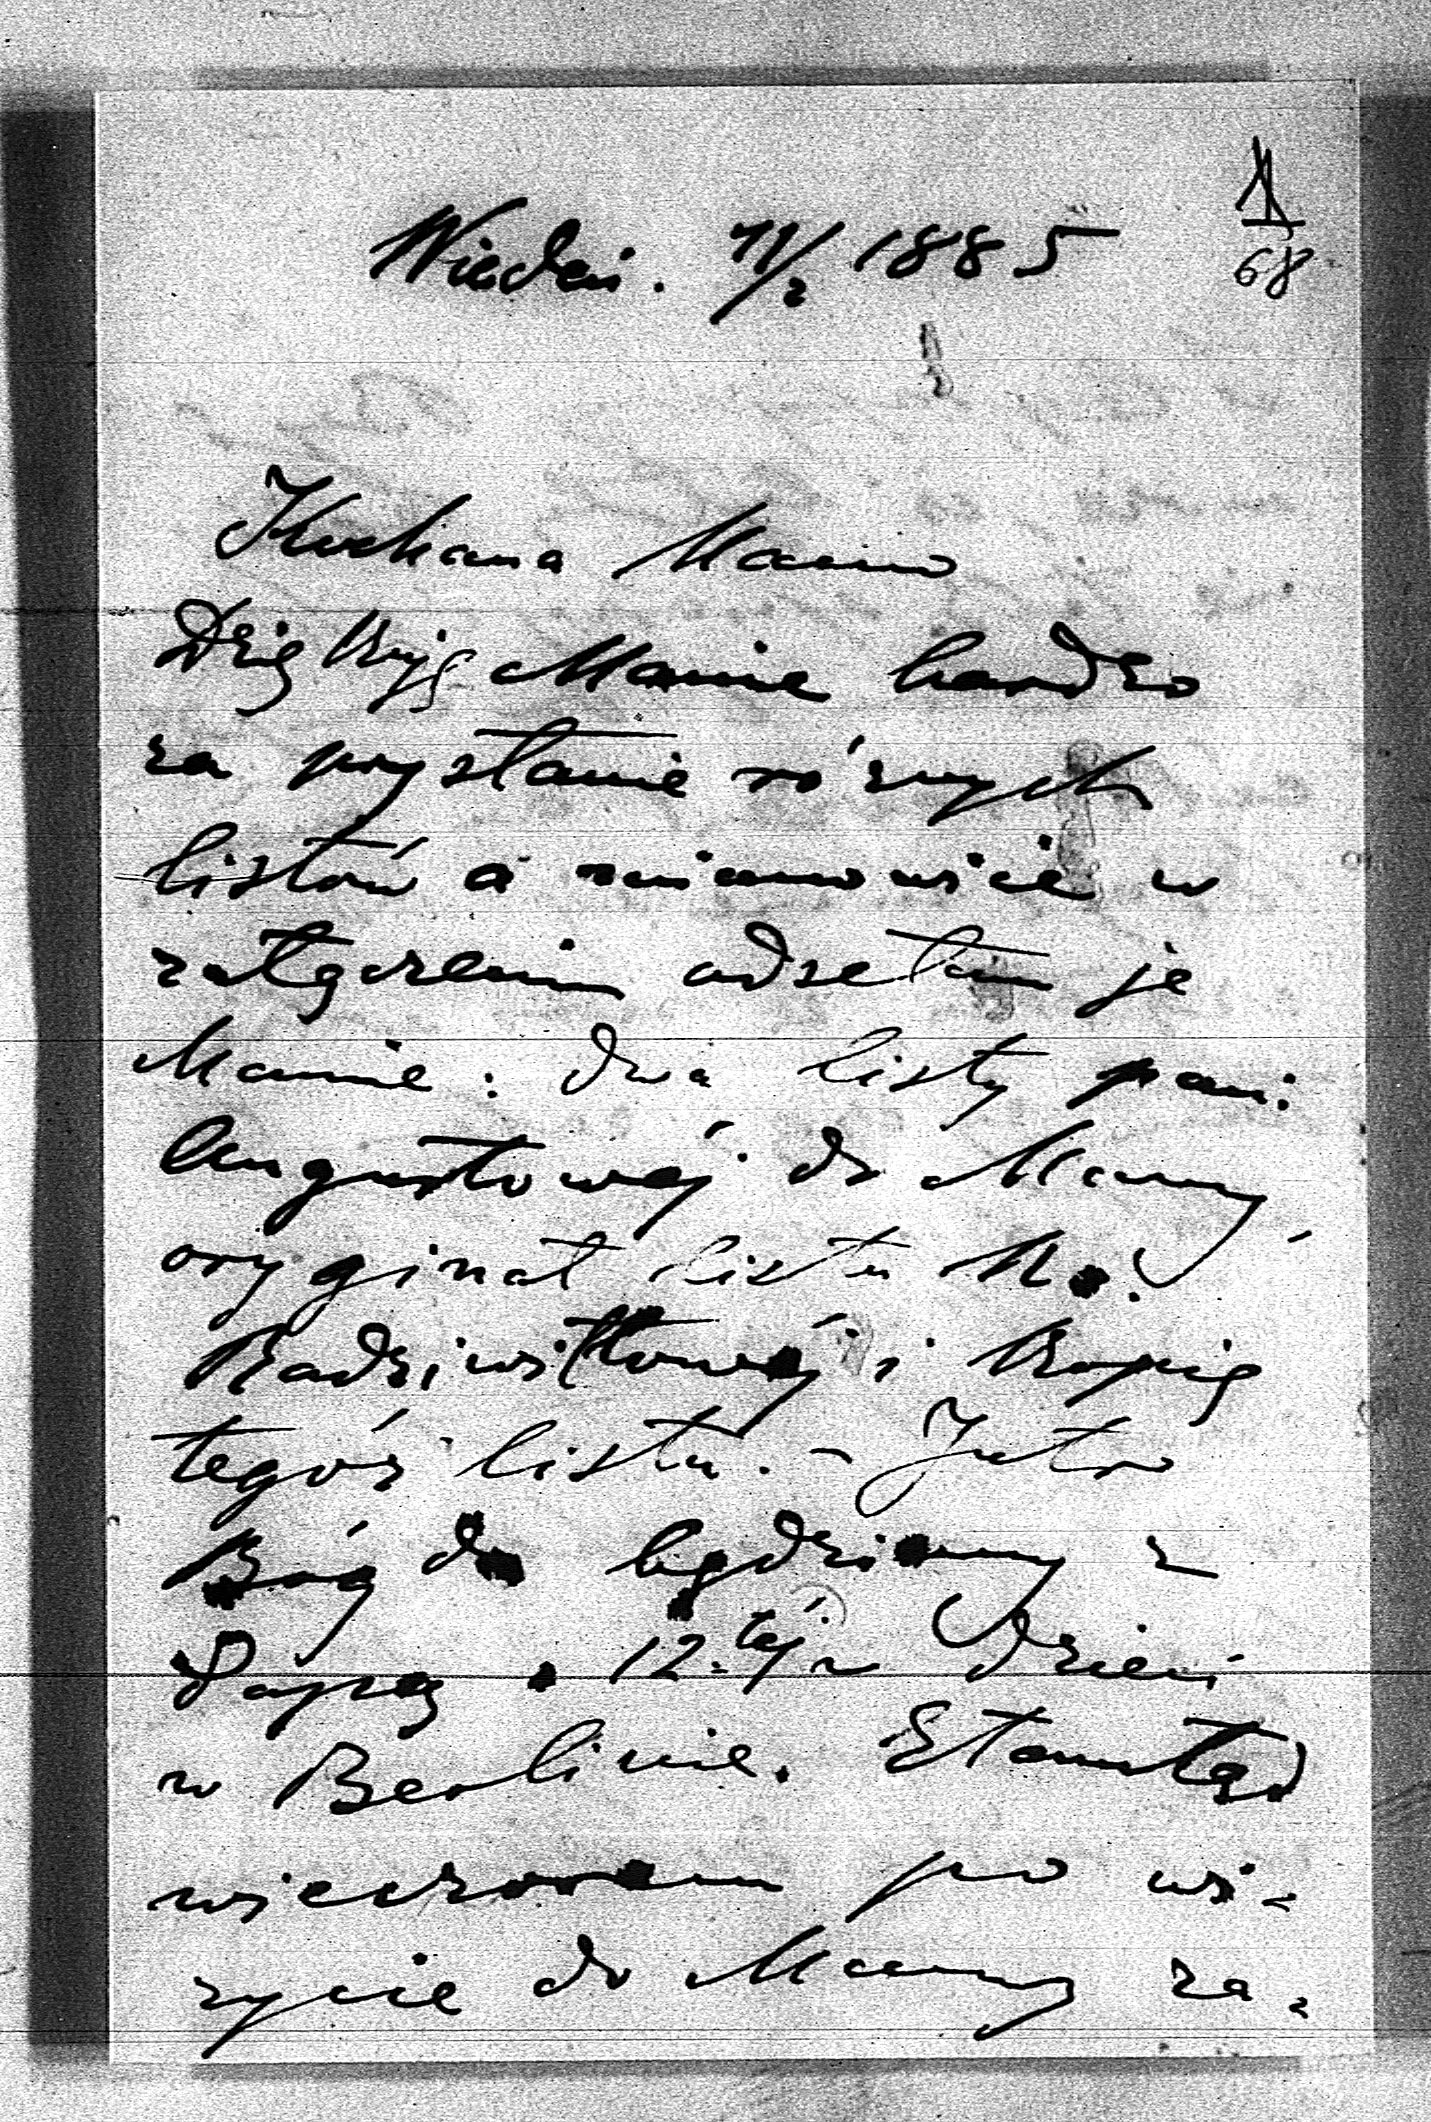 Wiedeń. 11/2 1885
1
68
Kochana Mamo
Dziękuję Mamie bardzo
za przysłanie różnych
listów a mianowicie w
załączeniu odsełam je
Mamie: dwa listy pani
Augustowéj do Mamy,
oryginał listu M.
Radziwiłłowéj i kopię
tegóż listu. – Jutro
Bóg da będziemy z
Papą o 12-téj w dzień
w Berlinie. Ztamtąd
wieczorem po wi-
zycie do Mamy za-